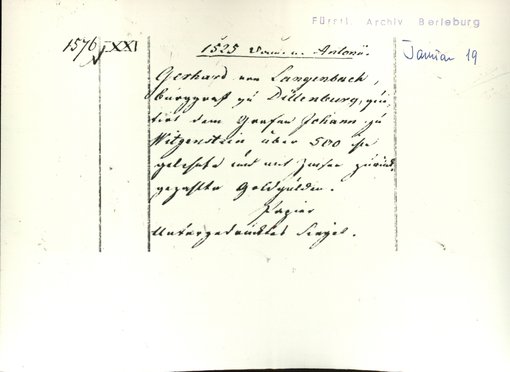 Fürstl. Archiv Berleburg
1576 XXI
1525 Antonii.
Januar 19
Gerhard von Langenbach,
burggraf zu Dillenburg, quit-
tirt dem Grafen Johann zu
Witgenstein über 500 ihm
geliehene und mit Zinsen zurück
gezahlte Goldgulden.
Papier
Untergedrücktes Siegel.